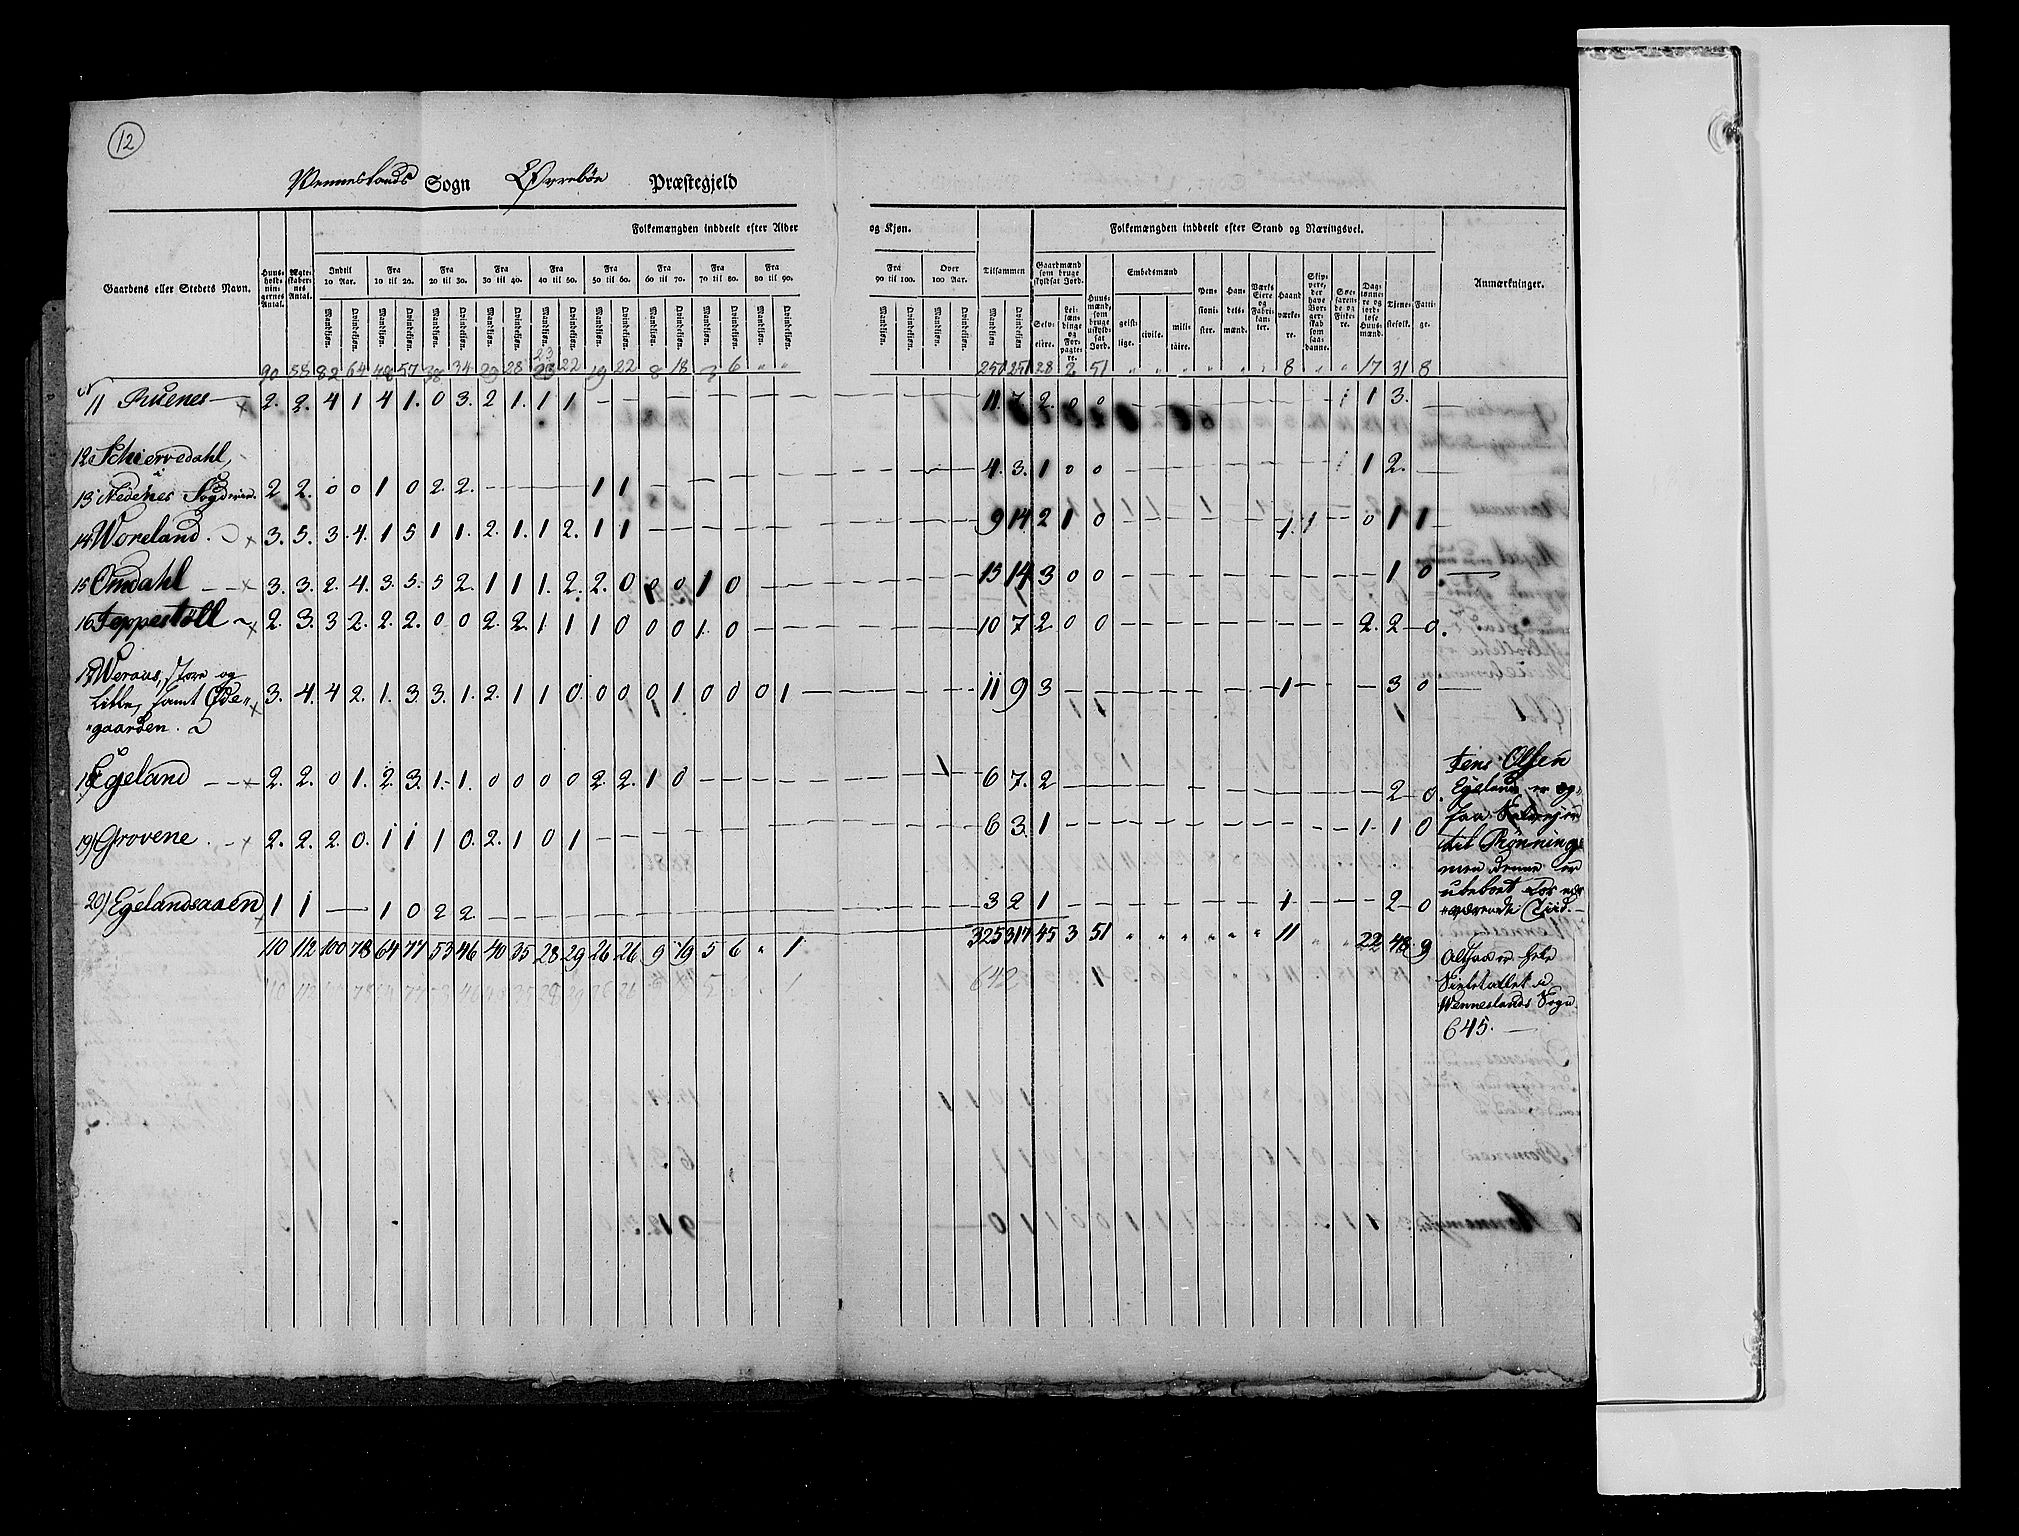 12
Wenneslands Sogn Øvrebøe Præstegjeld
Folkemængden inddeelt efter Alder og Kjøn. Folkemængden inddeelt efter Stand og Næringsvei.
Gaardens eller Stedets Navn. Huusholdningernes Antal. Ægteskabernes Antal. Indtil 10 Aar. Fra 10 til 20. Fra 20 til 30. Fra 30 til 40. Fra 40 til 50. Fra 50 til 60. Fra 60 til 70. Fra 70 til 80. Fra 80 til 90. Fra 90 til 100. Over 100 Aar. Tilsammen Gaardmænd som bruge skyldsat Jord. Huusmænd, som bruge uskyldsat Jord. Embedsmænd Pensionister. Handelsmænd. Værks Eiere og Fabrikanter. Haandværkere. Skippere, der have Borgerskab som saadanne. Søefarende og Fiskere. Daglønnere og jordløse Huusmænd. Tjenestefolk. Fattige. Anmærkninger.
Mandkjøn. Qvindekjøn. Mandkjøn. Qvindekjøn. Mandkjøn. Qvindekjøn. Mandkjøn. Qvindekjøn. Mandkjøn. Qvindekjøn. Mandkjøn. Qvindekjøn. Mandkjøn. Qvindekjøn. Mandkjøn. Qvindekjøn. Mandkjøn. Qvindekjøn. Mandkjøn. Qvindekjøn. Mandkjøn. Qvindekjøn. Mandkjøn Qvindekjøn. Selveiere. Leilændinge og Forpagtere. geistlige. civile. militaire.
90 55 82 64 48 57 38 34 29 28 23 22 19 22 8 18 3 6 " " 250 251 28 2 51 " " " " " " 8 " " 17 31 8
11 Ruenes 2. 2. 4 1 4 1. 0 3. 2 1. 1 1 11. 7 2. 0 0 1 3.
12 Schiervedahl, 4. 3. 1 0 0 1 2.
13 Nedenes Sogd 2 2. 0 0 1 0 2. 2. 1 1
14 Woreland 3. 5. 3. 4. 1 5 1 1. 2. 1. 1 2. 1 1 9 14 2 1 0 1. 1 0 1 1
15 Omdahl 3. 3. 2. 4. 3. 5. 5 2. 1 1 1. 2. 2. 0 0 0 1 0 15 14 3 0 0 1 0
16 Teppestöll 2. 3. 3 2. 2. 2. 0 0 2. 2. 1 1 1 0 0 0 1. 0 10 7 2. 0 0 2. 2 0.
17 Weraas, store og
Lille, samt Øde- 3. 4. 4 2. 1. 3 3. 1. 2. 1 1 0 0 0 0 1 0 0 0 1 11 9 3 1 3 0
gaarden.
18 Egeland 2. 2. 0 1. 2. 3. 1. 1. 0 0 0 0 2. 2. 1 0 6 7. 2 2 0. Jens Olsen
Egeland er og-
19) Grovene 2. 2. 2. 0. 1 1 1 0. 2. 1 0 1 6 3. 1 1 1 0 saa Selveier
til Rønning
men denne er
20) Egelandsaaen 1 1 1 0 2 2 3 2 1 1 2 0 ubeboet for nær-
værende Tiid.
110 112 100 78 64 77 53 46 40 35 28 29 26 26 9 19 5 6 " 1 325 317 45 3 51 " " " " " " 11 " " 22 48 9
Altsaa er hele
110 112 100 78 64 77 53 46 40 35 28 29 26 26 5 1 642 Sieletallet i
Wenneslands Sogn
645.